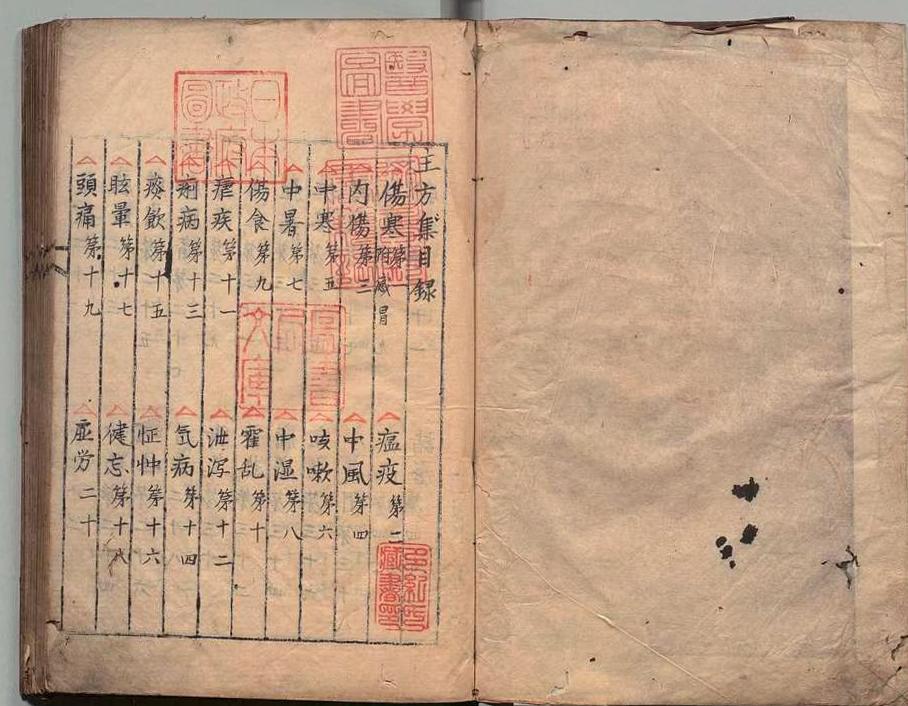 主方集目録
傷寒第一 附感冒
瘟疫第二
内傷第三
中風第四
中寒第五
咳嗽第六
中暑第七
中湿第八
傷食第九
霍乱第十
瘧疾第十一
泄泻第十二
痢病第十三
気病第十四
痰飲第十五
怔忡第十六
眩暈第十七
健忘第十八
頭痛第十九
虚労二十
醫學圖書
日本政府圖書